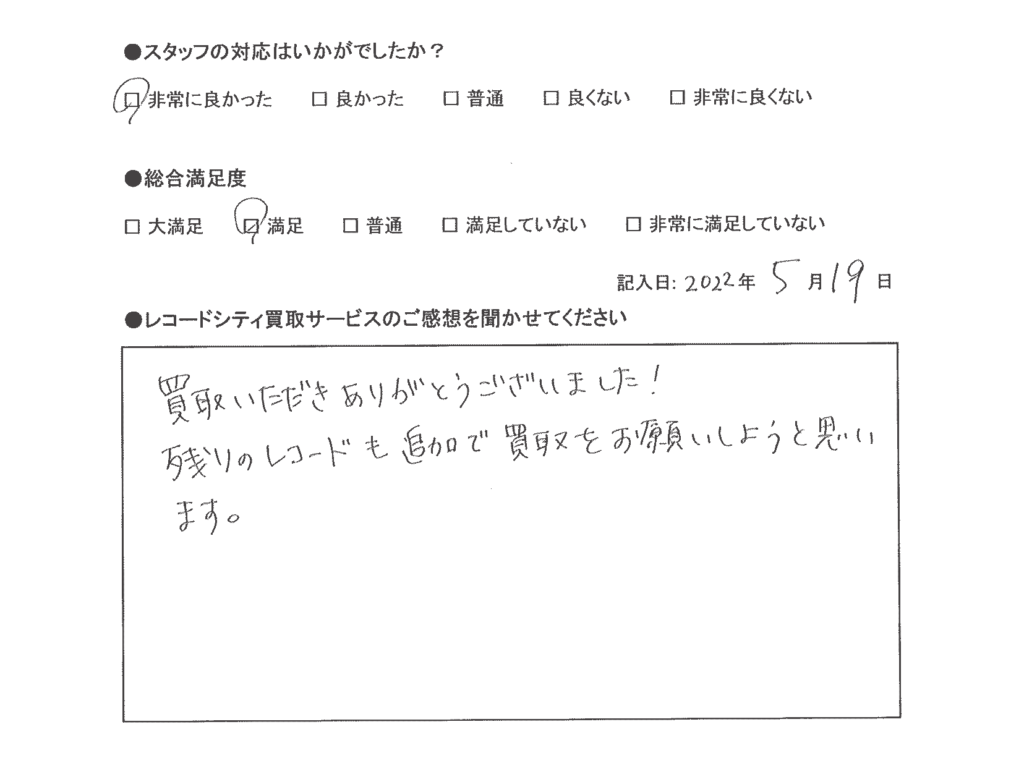 ●スタッフの対応はいかがでしたか？
□ 非常に良かった □ 良かった □ 普通 □ 良くない □ 非常に良くない
●総合満足度
□ 大満足 ☑ 満足 □ 普通 □ 満足していない □ 非常に満足していない
記入日: 2022年 5月19日
●レコードシティ買取サービスのご感想を聞かせてください
買取いただきありがとうございました！
残りのレコードも追加で買取をお願いしようと思い
ます。